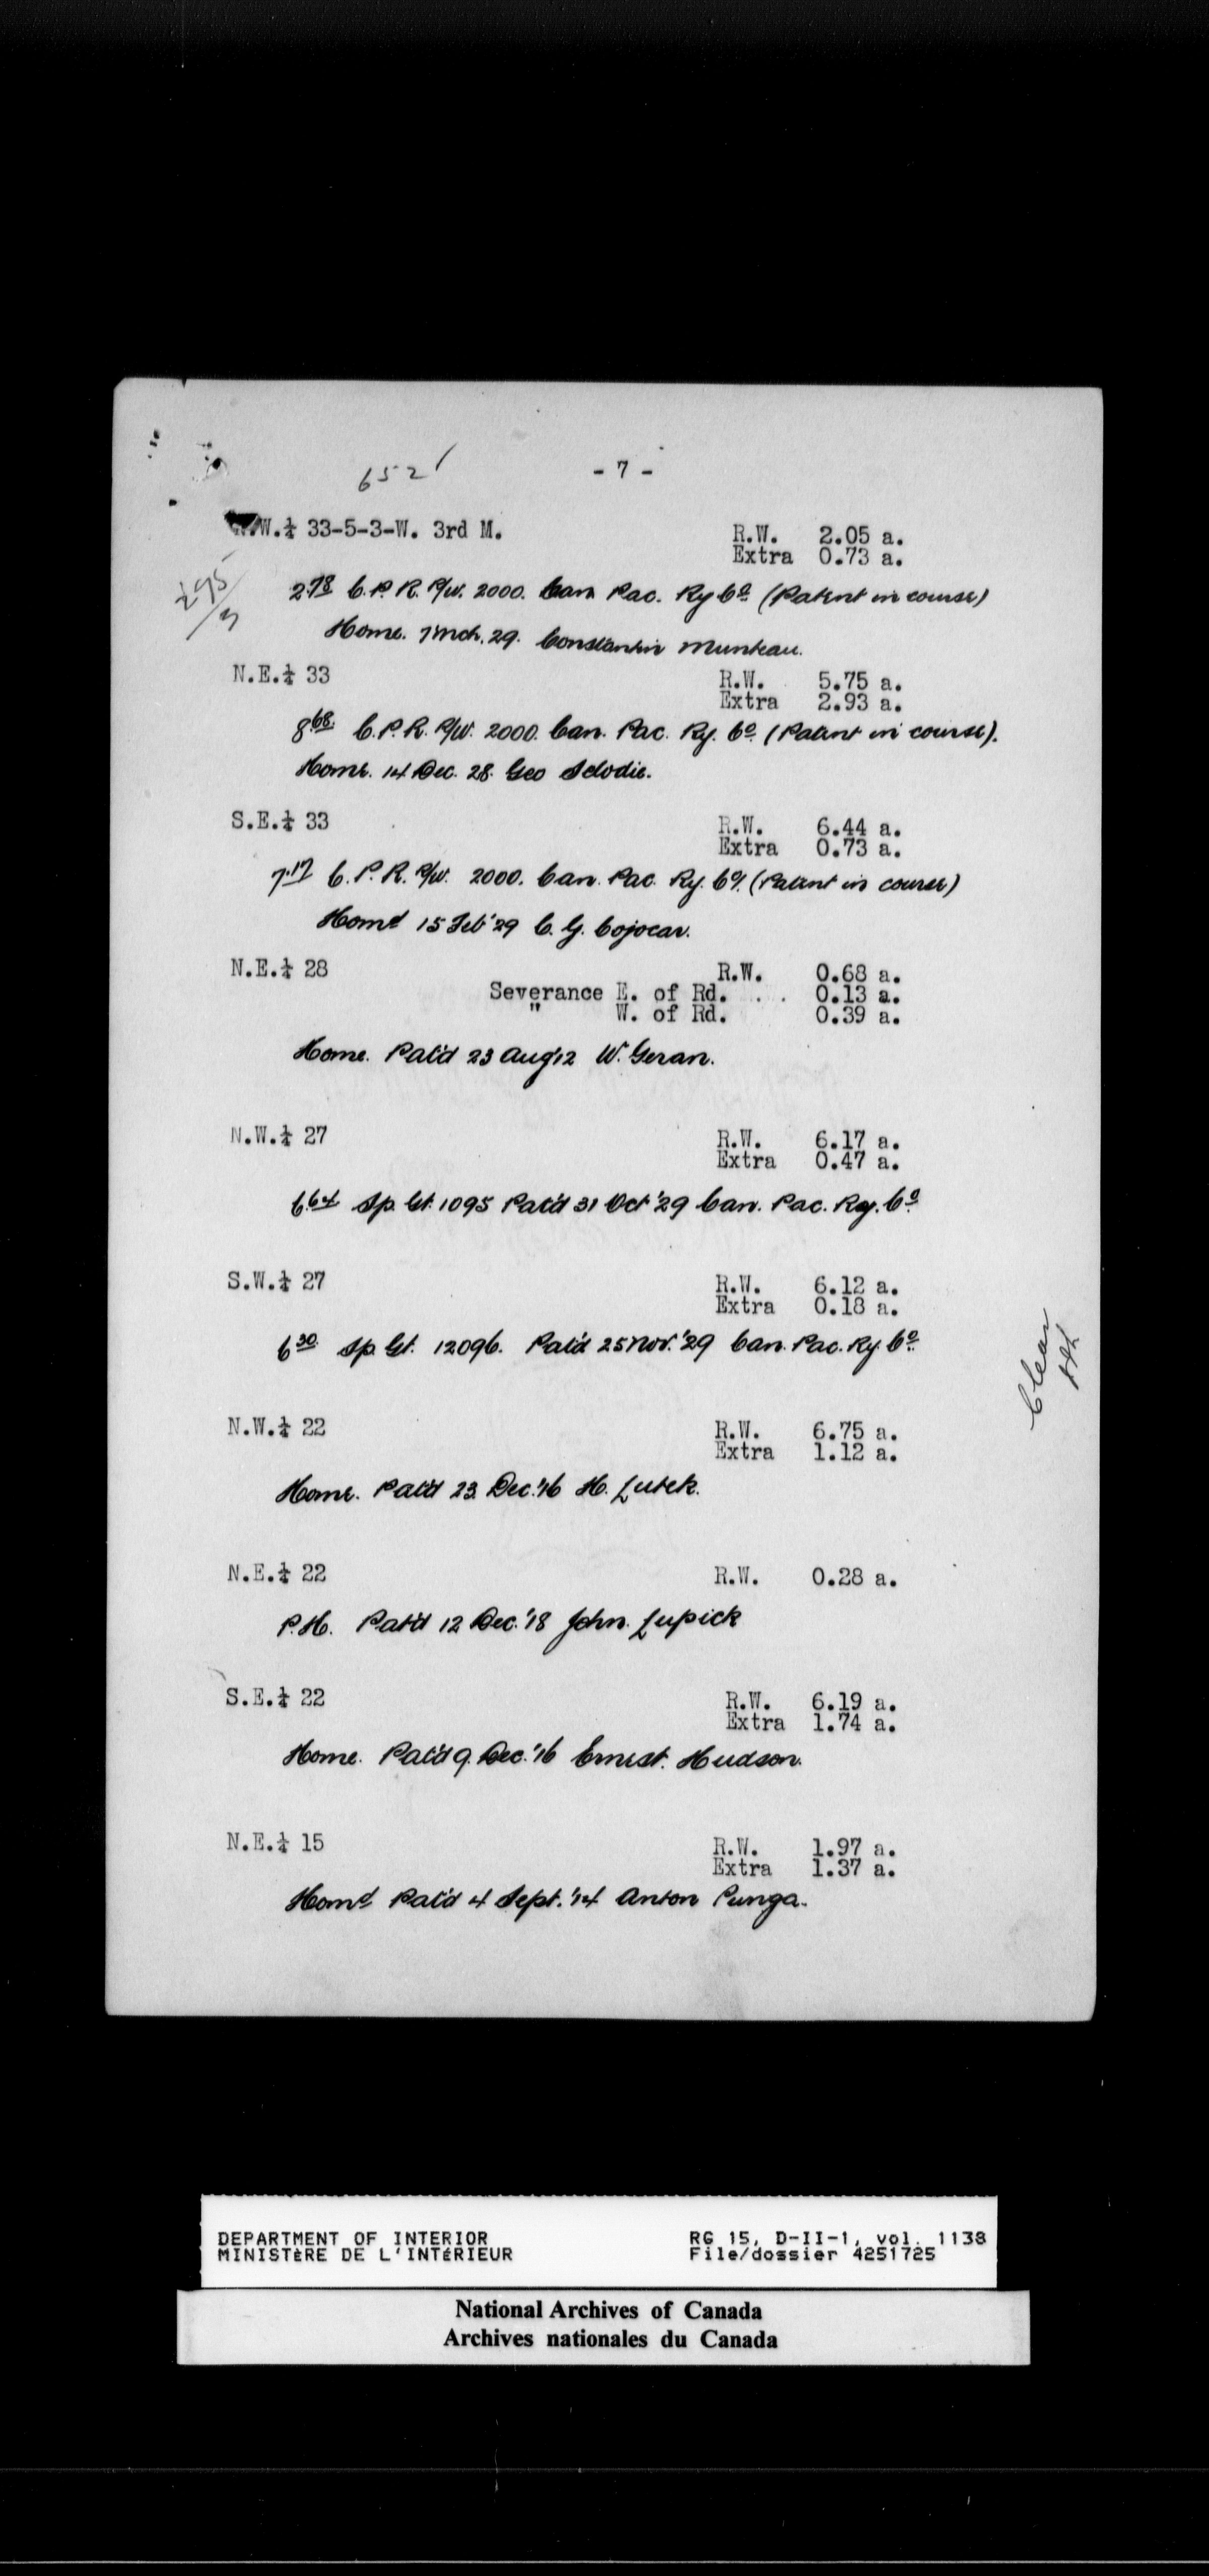 652
- 7 -
.W.¼ 33-5-3-W. 3rd M. R.W. 2.05 a.
Extra 0.73 a.
2.78 C.P.R. R/W. 2000. Can. Pac. Ry Co (Patent in course)
Home. 7 Mch. 29. Constantin Munteau.
N.E.¼ 33 R.W. 5.75 a.
Extra 2.93 a.
8.68 C.P.R. R/W. 2000. Can. Pac. Ry. Co. (Patent in course).
Home. 14 Dec. 28. Geo Sclodie.
S.E.¼ 33 R.W. 6.44 a.
Extra 0.73 a.
7.17 C.P.R. R/W. 2000. Can. Pac. Ry. Co. (Patent in course)
Homd 15 Feb '29 C. G. Cojocar.
N.E.¼ 28 R.W. 0.68 a.
Severance E. of Rd. . . 0.13 a.
" W. of Rd. 0.39 a.
Home. Pat'd 23 Aug '12 W. Geran.
N.W.¼ 27 R.W. 6.17 a.
Extra 0.47 a.
6.64 Sp. Gt. 1095 Pat'd 31 Oct '29 Can. Pac. Ry. Co.
S.W.¼ 27 R.W. 6.12 a.
Extra 0.18 a.
6.30 Sp. Gt. 12096. Pat'd 25 Nov. '29 Can. Pac. Ry. Co.
Clear
N.W.¼ 22 R.W. 6.75 a.
Extra 1.12 a.
Home. Pat'd 23 Dec. '16 H. Lutek.
N.E.¼ 22 R.W. 0.28 a.
P.H. Pat'd 12 Dec. '18 John. Lupick
S.E.¼ 22 R.W. 6.19 a.
Extra 1.74 a.
Home. Pat'd 9. Dec. '16 Ernest. Hudson.
N.E.¼ 15 R.W. 1.97 a.
Extra 1.37 a.
Homd Pat'd 4 Sept. '14 Anton Punga.
DEPARTMENT OF INTERIOR RG 15, D-II-1, vol. 1138
MINISTÈRE DE L'INTÉRIEUR File/dossier 4251725
National Archives of Canada
Archives nationales du Canada